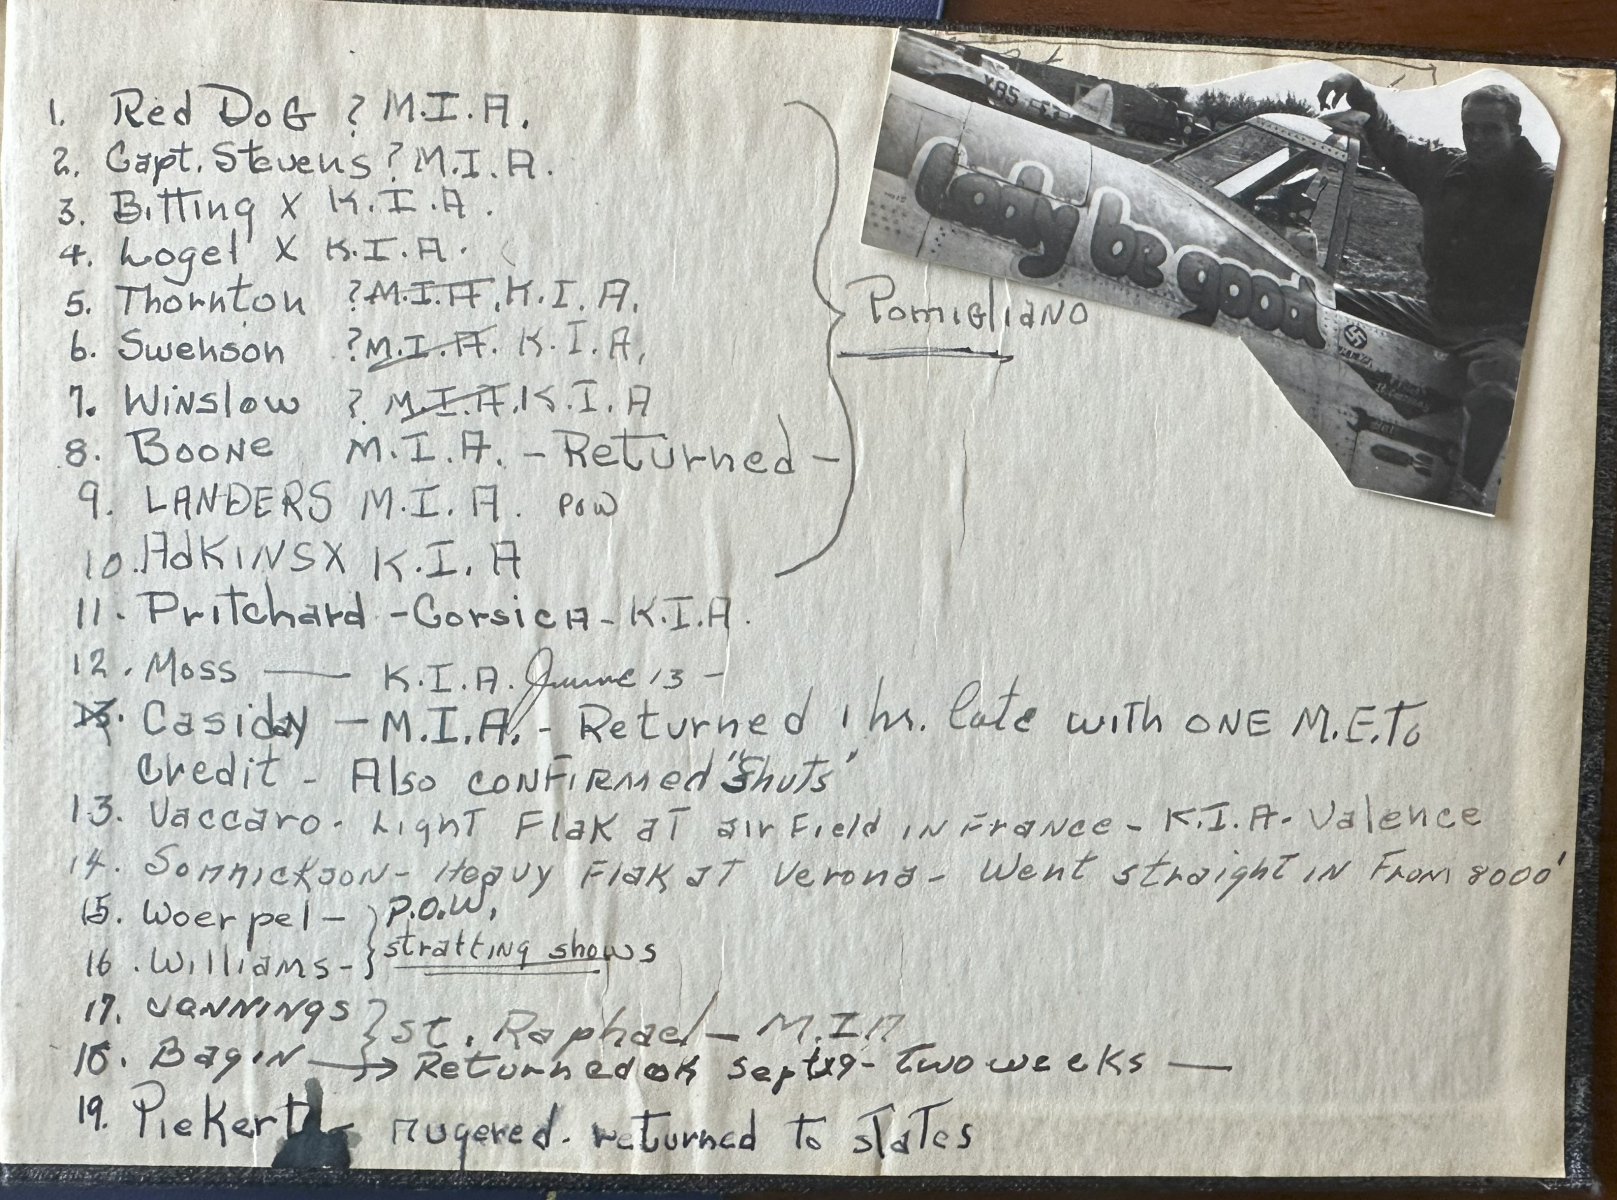 1. Red DoG ? M.I.A.
2. Capt. Stevens ? M.I.A.
3. Bitting X K.I.A.
4. Logel X K.I.A.
5. Thornton ? M.I.A. K.I.A.
6. Swenson ? M.I.A. K.I.A.
7. Winslow ? M.I.A. K.I.A
8. Boone M.I.A. - Returned -
9. LANDERS M.I.A. POW
10. AdKINS X K.I.A
Pomigliano
11. Pritchard - Corsica - K.I.A.
12. Moss — K.I.A. June 13 -
13. Casiday - M.I.A. - Returned 1 hr. late with ONE M.E. To
Credit - Also CONFIRMED "Shuts"
13. Vaccaro - Light Flak at air Field in France - K.I.A. - Valence
14. - Heavy Flak at Verona - Went straight in From 8000'
15. Woerpel - P.O.W.
16. Williams - shows
17. Jennings St. Raphael - M.I.A
18. Bagin → Returned ok Sept - two weeks —
19. PieKert - returned to states
Lady be good
X85